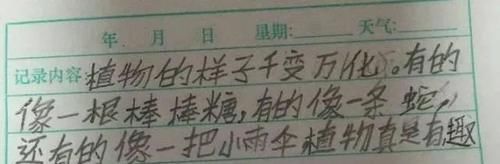 年 月 日 星期: 天气:
记录内容 植物的样子千变万化。有的
像一根棒棒糖,有的像一条蛇,
还有的像一把小雨伞植物真是有趣